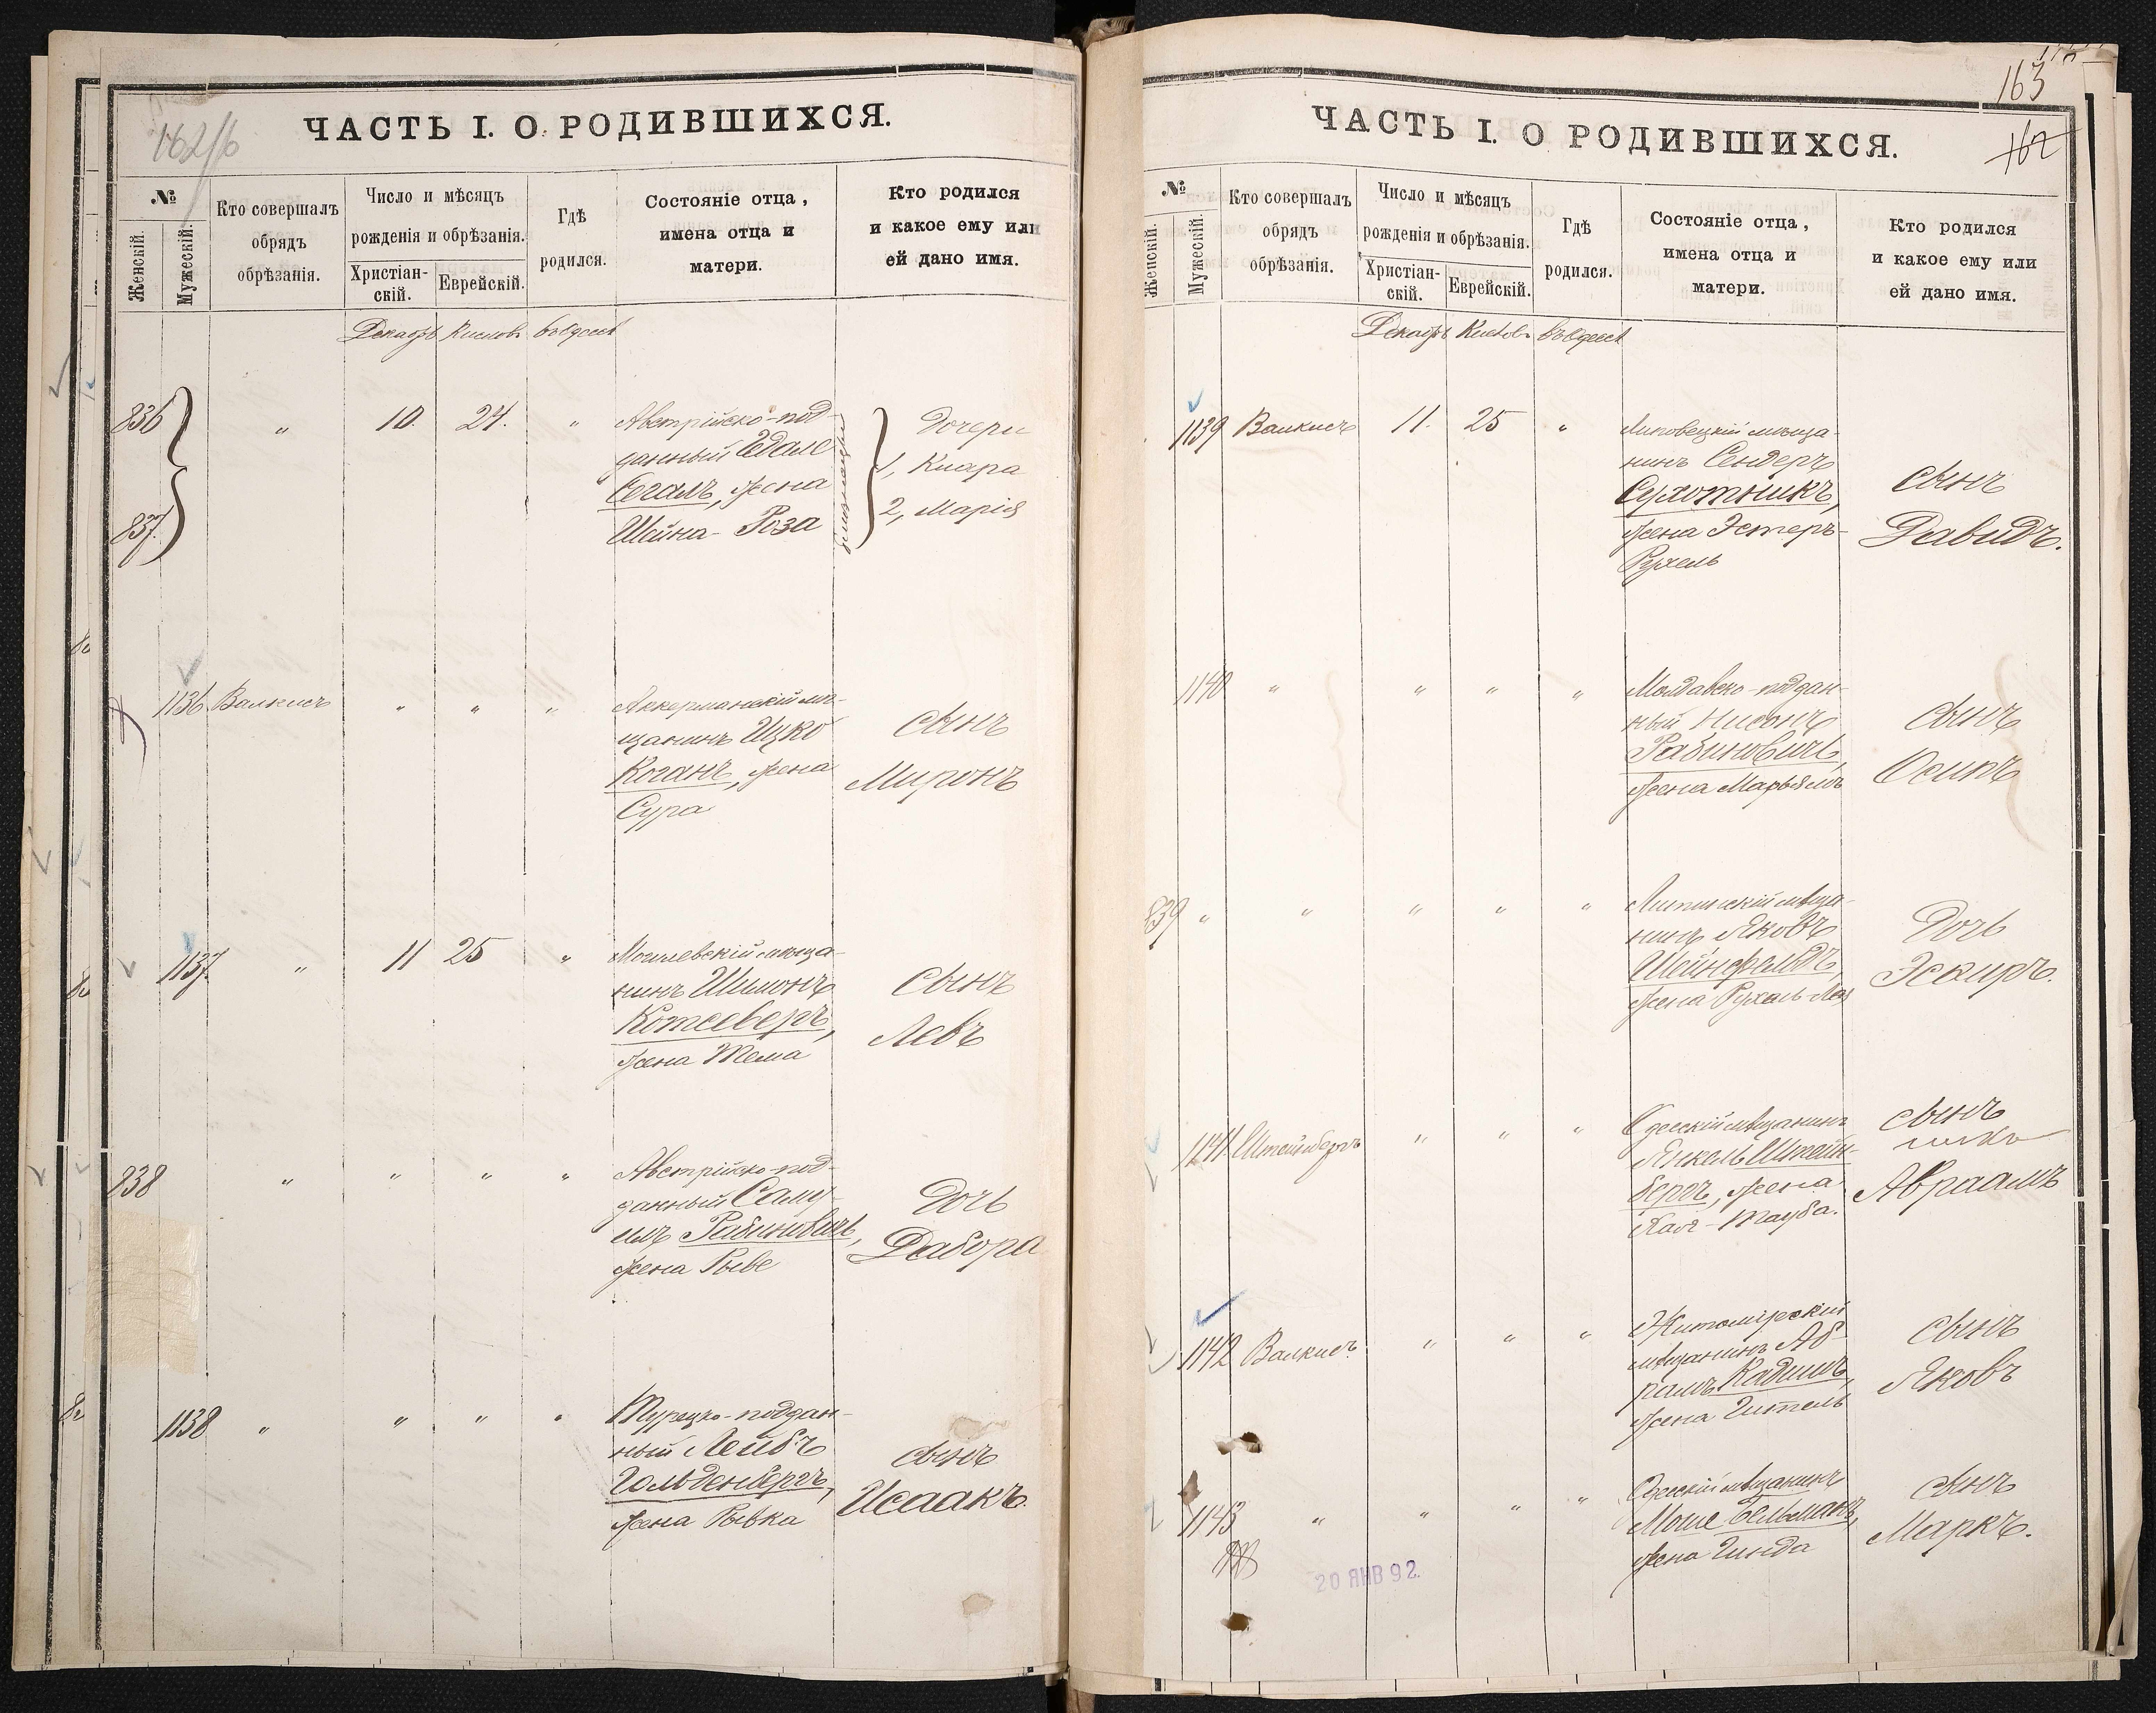 162/б
ЧАСТЬ I. О РОДИВШИХСЯ.
№
Женскій.
Мужескій.
Кто совершалъ
обрядъ
обрѣзанія.
Число и мѣсяцъ
рожденія и обрѣзанія.
Христіан-
скій.
Еврейскій.
Гдѣ
родился.
Состояніе отца,
имена отца и
матери.
Кто родился
и какое ему или
ей дано имя.
Декабрь Кислевъ въ Одессѣ
836
837
" 10. 24. "
Австрійско-под-
данный Едале
Сегалъ, жена
Шейна-Роза
Дочери
1, Клара
2, Марія
1136 Валкисъ " " "
Аккерманскій мѣ-
щанинъ Ицко
Коганъ, жена
Сура
сынъ
Миронъ
1137 " 11 25 "
Могилевскій мѣща-
нинъ Шимонъ
жена Тема
Сынъ
Левъ
838 " " " "
Австрійско-под-
данный Саму-
илъ Рабиновичъ,
жена Рыве
Дочь
Дабора
1138 " " " "
Турецко-поддан-
ный Лейбъ
Гольденбергъ,
жена Рывка
сынъ
Исаакъ.
163
162
ЧАСТЬ I. О РОДИВШИХСЯ.
№
Женскій.
Мужескій.
Кто совершалъ
обрядъ
обрѣзанія.
Число и мѣсяцъ
рожденія и обрѣзанія.
Христіан-
скій.
Еврейскій.
Гдѣ
родился.
Состояніе отца,
имена отца и
матери.
Кто родился
и какое ему или
ей дано имя.
Декабрь Кислевъ въ Одессѣ
1139 Валкисъ 11. 25 "
Липовецкій мѣща-
нинъ Сендеръ
Сухотникъ,
жена Эстеръ-
Рухель
сынъ
Давидъ.
1140 " " " "
Молдавско-поддан-
ный Нисонъ
Рабиновичъ,
жена Марьямъ
сынъ
Осипъ
839 " " " " "
нинъ Яковъ
Шейнфельдъ,
жена Рухель-Лея
Дочь
Эсѳирь.
1141. Штейнбергъ " " "
Одесскій мѣщанинъ
Янкель Штейн-
бергъ, жена
Хая-Тауба.
сынъ
Авраамъ
1142 Валкисъ " " "
Житомирскій
мѣщанинъ Аб-
рамъ Кадишъ,
жена Гитель
сынъ
Яковъ
1143 " " " "
Одесскій мѣщанинъ
Моше Бельманъ,
жена Гинда
сынъ
Маркъ.
20 ЯНВ 92.